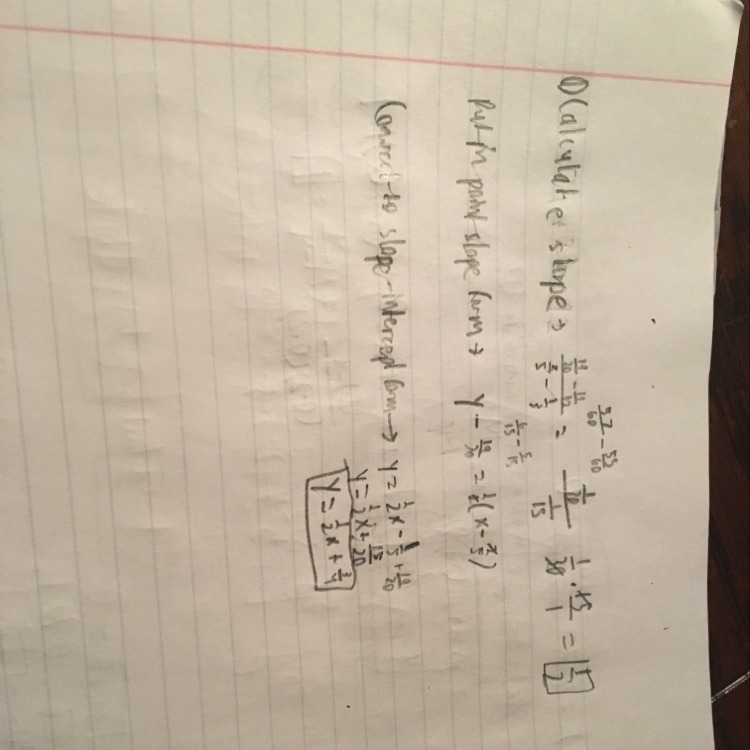 57/60 - 55/60
① Calculate slope → (19/20 - 11/12)/(2/5 - 1/3) = (1/30)/(1/15) 1/30 · 15/1 = 1/2
6/15 - 5/15
Put in point slope form → y - 19/20 = 1/2(x - 2/5)
Convert to slope-intercept form → y = 1/2x - 1/5 + 19/20
y = 1/2x + 15/20
y = 1/2x + 3/4